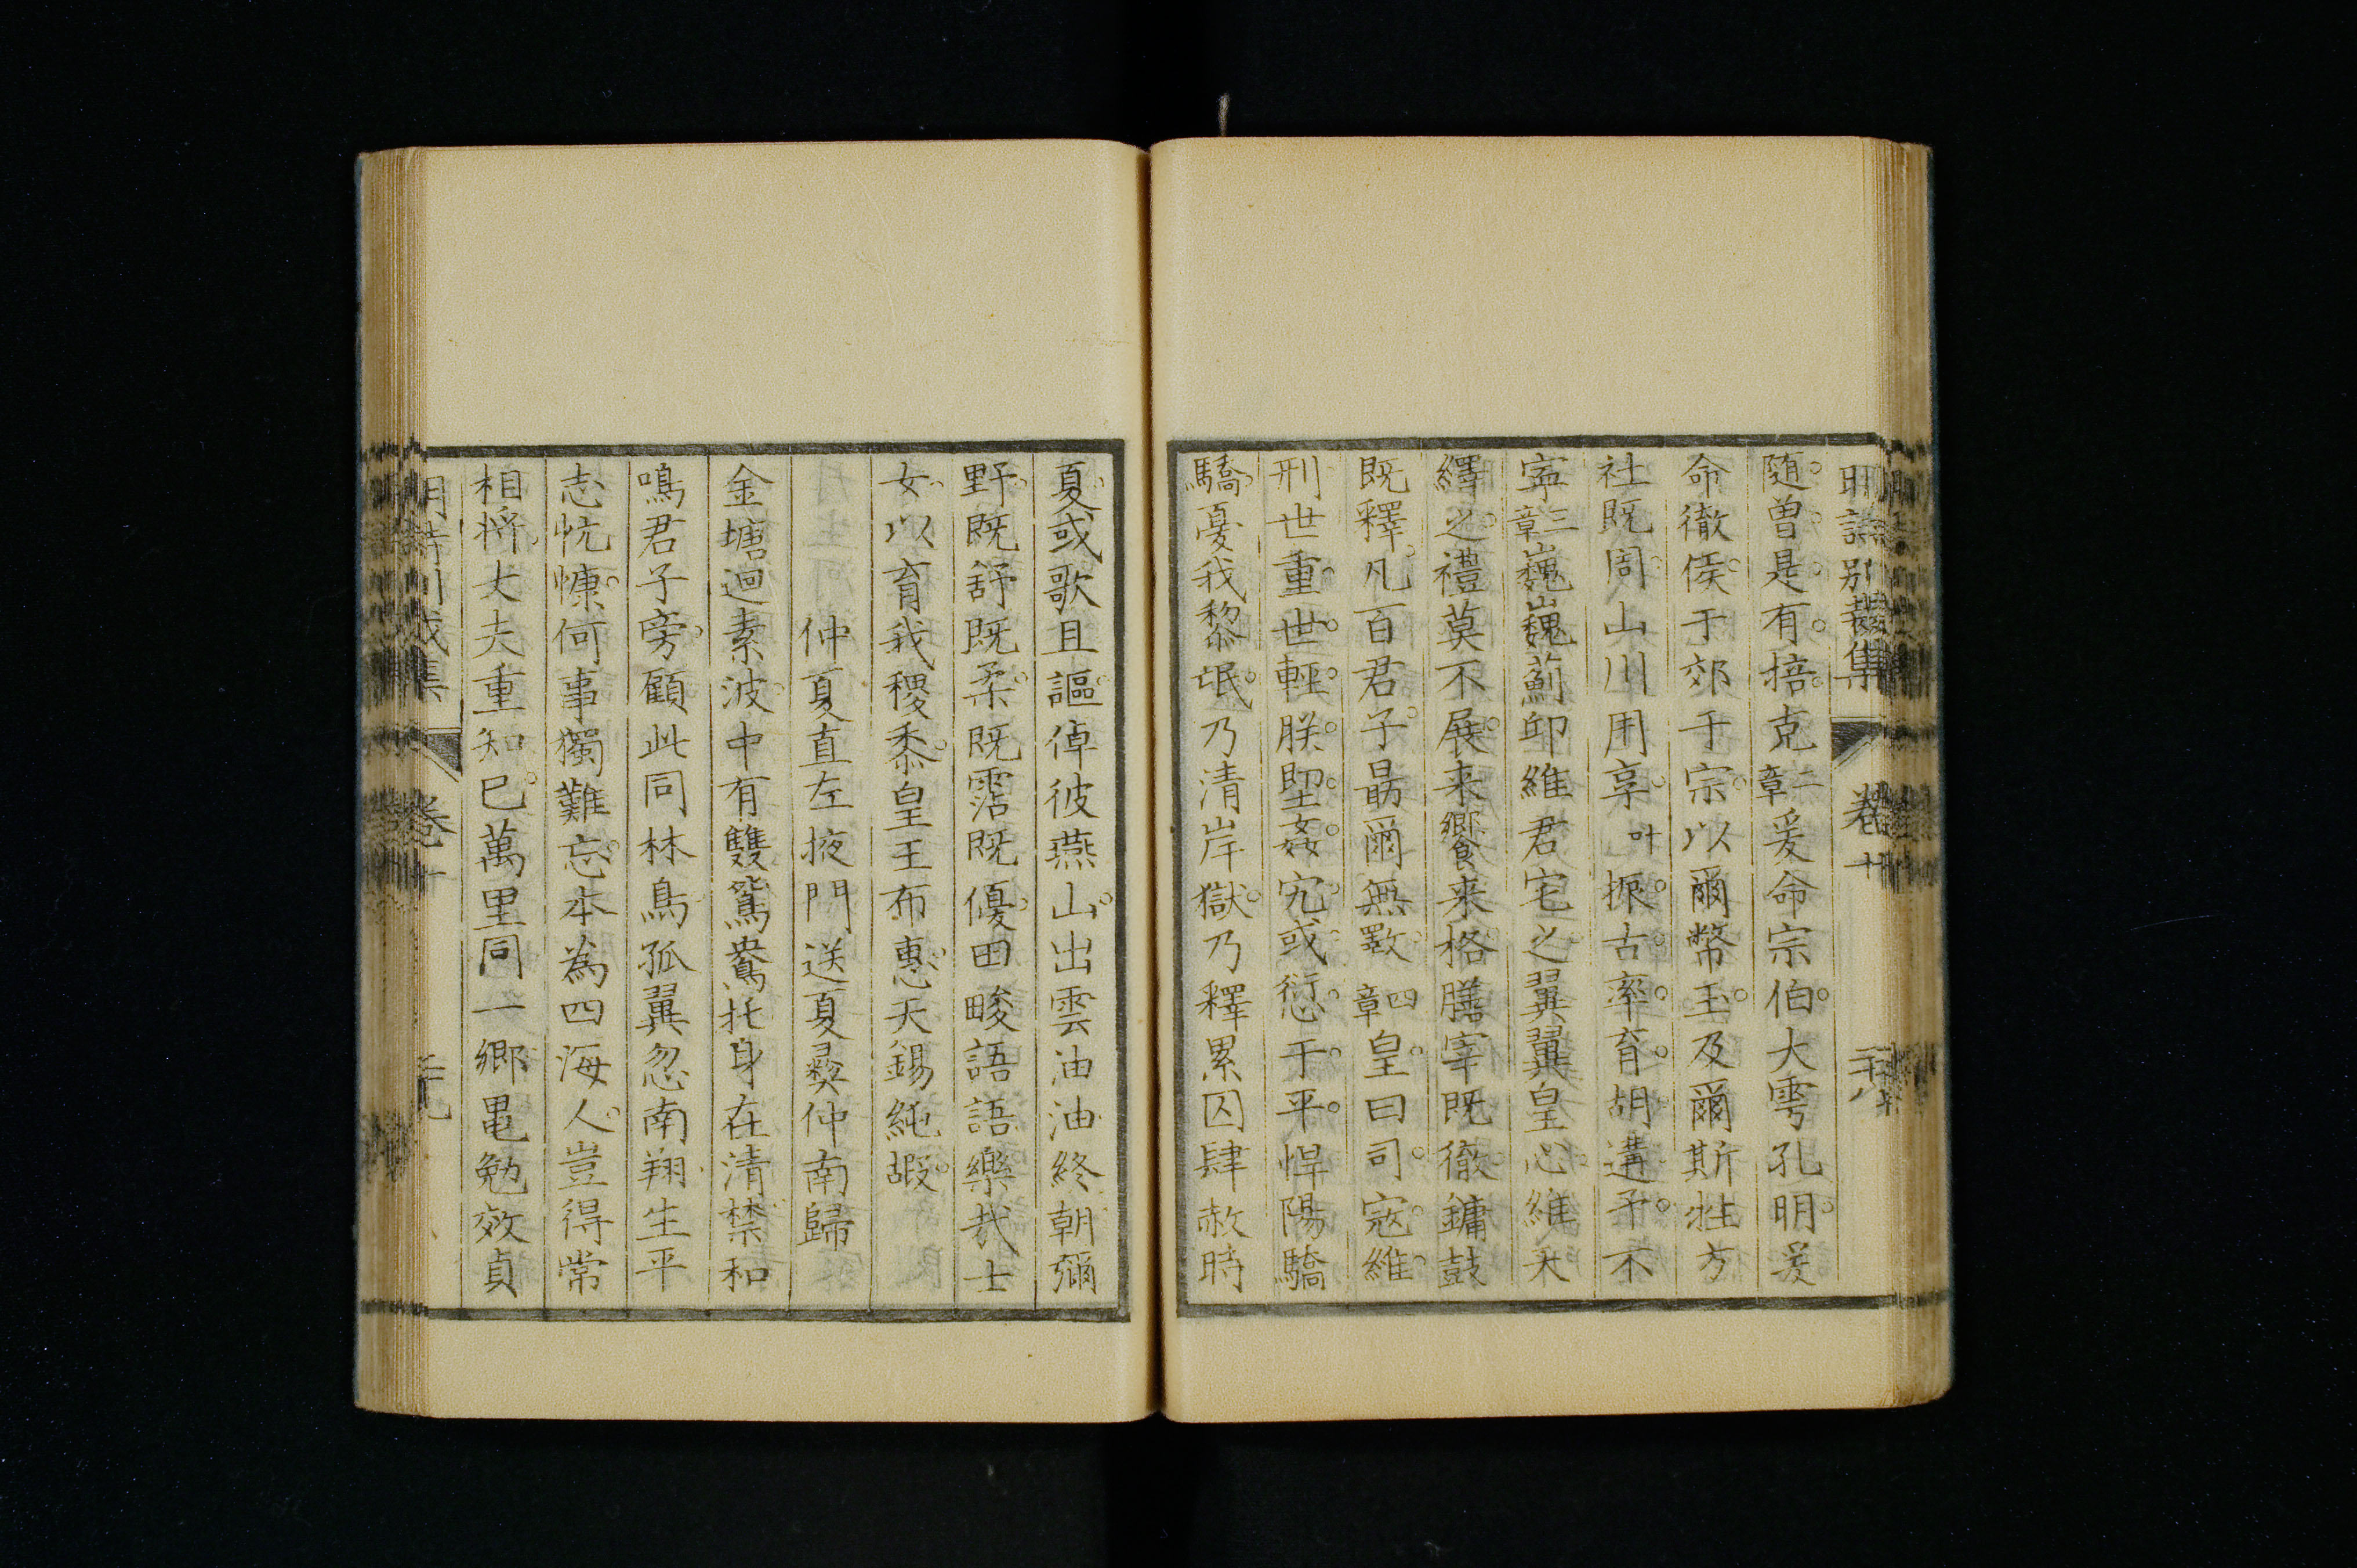 明詩別裁集 卷十 二十八
隨曾是有掊克二章爰命宗伯大雩孔明爰
命徹侯于郊于宗以爾幣玉及爾斯牲方
社既周山川用享叶振古率育胡遘予不
寧三章巍巍薊邱維君宅之翼翼皇心維天
繹之禮莫不展来饗来格膳宰既徹鏞鼓
既釋凡百君子勗爾無斁四章皇曰司寇維
刑世重世輕朕堲姦宄或愆于平悍陽驕
驕憂我黎氓乃清岸獄乃釋累囚肆赦時
夏或歌且謳倬彼燕山出雲油油終朝彌
野既舒既柔既霑既優田畯語語樂哉士
女以育我稷黍皇王布惠天錫純嘏
仲夏直左掖門送夏彛仲南歸
金塘迴素波中有雙鴛鴦托身在清禁和
鳴君子旁顧此同林鳥孤翼忽南翔生平
志忼慷何事獨難忘本為四海人豈得常
相将丈夫重知已萬里同一鄉黽勉效貞
明詩別裁集 卷十 二十九